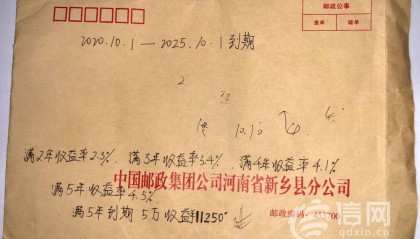 邮政公事
查单
验单
2020.10.1—2025.10.1到期
2
10.10
满2年收益率2.3%、满3年收益率3.4%、满4年收益率4.1%
中国邮政集团公司河南省新乡县分公司
满5年收益率4.5%
满5年到期 5万收益11250
邮政编码:453700
信网
qdxin.cn